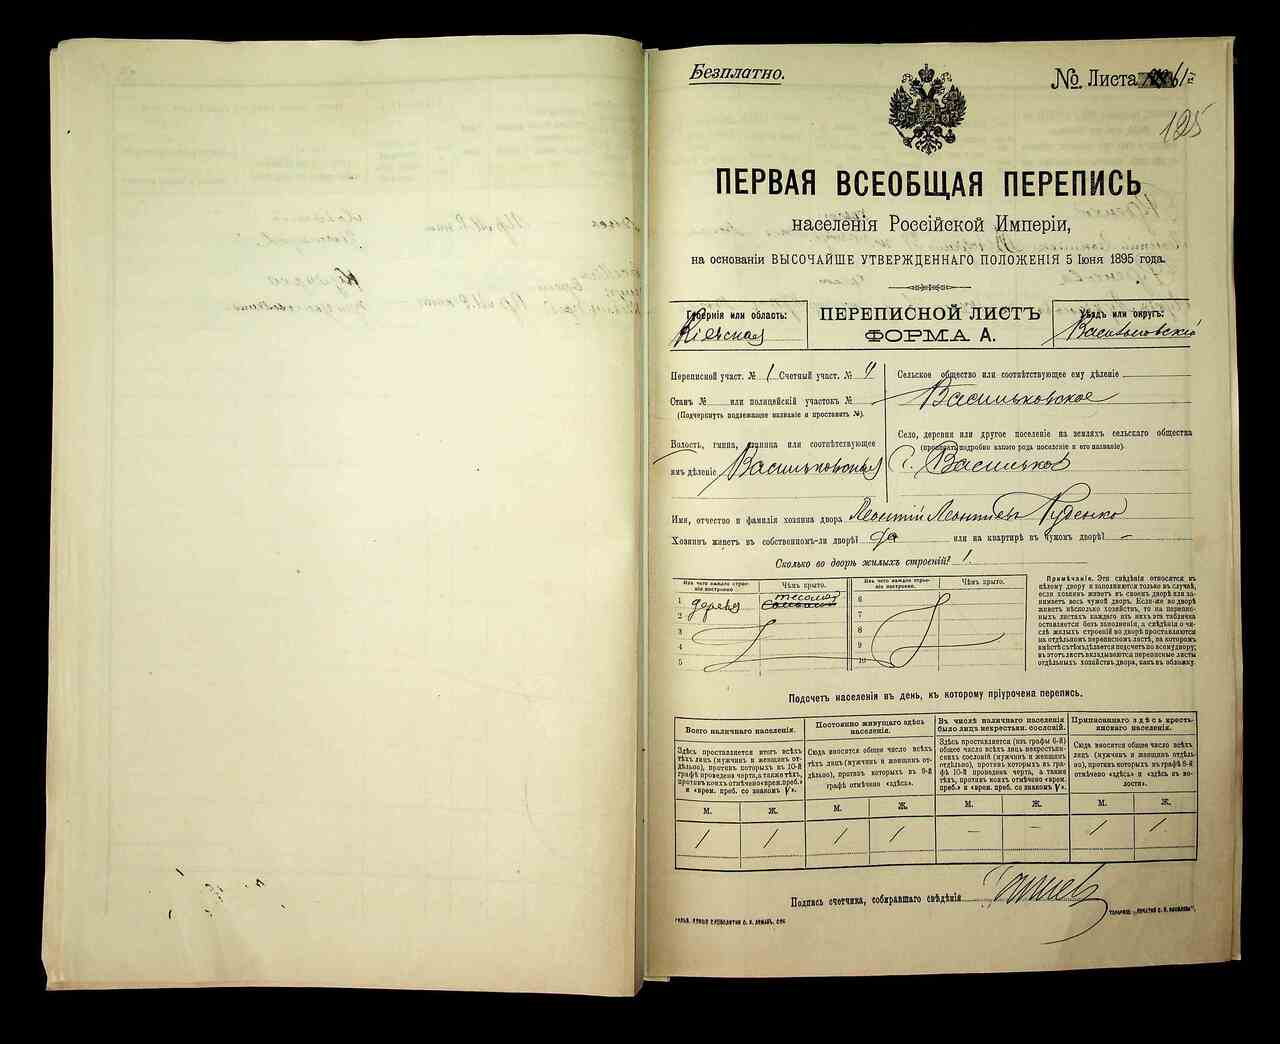 Безплатно.
№ Листа 61
125
ПЕРВАЯ ВСЕОБЩАЯ ПЕРЕПИСЬ
населенія Россійской Имперіи,
на основаніи ВЫСОЧАЙШЕ УТВЕРЖДЕННАГО ПОЛОЖЕНІЯ 5 Іюня 1895 года.
Губернія или область:
Кіевская
ПЕРЕПИСНОЙ ЛИСТЪ
ФОРМА А.
Уѣздъ или округъ:
Васильковскій
Переписной участ. № 1 Счетный участ. № 4
Станъ № или полицейскій участокъ №
(Подчеркнуть надлежащее названіе и проставить №).
Волость, гмина, станица или соотвѣтствующее
имъ дѣленіе Васильковская
Сельское общество или соотвѣтствующее ему дѣленіе
Васильковское
Село, деревня или другое поселеніе на земляхъ сельскаго общества
(прописать подробно какого рода поселеніе и его названіе).
г. Васильков
Имя, отчество и фамилія хозяина двора Леонтій Леонтіев Руденко
Хозяинъ живетъ въ собственномъ-ли дворѣ? да или на квартирѣ въ чужомъ дворѣ? –
Сколько во дворѣ жилыхъ строеній? 1.
Изъ чего каждое строеніе построено
Чѣмъ крыто.
Изъ чего каждое строеніе построено
Чѣмъ крыто.
1 дерева тесомъ
2
3
4
5
6
7
8
9
10
Примѣчаніе. Эти свѣдѣнія относятся къ
цѣлому двору и заполняются только въ случаѣ,
если хозяинъ живетъ въ своемъ дворѣ или занимаетъ
весь чужой дворъ. Если-же во дворѣ
живетъ нѣсколько хозяйствъ, то на переписныхъ
листахъ каждаго изъ нихъ эта табличка
оставляется безъ заполненія, а свѣдѣнія о числѣ
жилыхъ строеній во дворѣ проставляются
на отдѣльномъ переписномъ листѣ, на которомъ
вмѣстѣ съ тѣмъ дѣлается подсчетъ по всему двору;
въ этотъ листъ вкладываются переписные листы
отдѣльныхъ хозяйствъ двора, какъ въ обложку.
Подсчетъ населенія въ день, къ которому пріурочена перепись.
Всего наличнаго населенія.
Постоянно живущаго здѣсь населенія.
Въ числѣ наличнаго населенія было лицъ некрестьян. сословій.
Приписаннаго здѣсь крестьянскаго населенія.
Здѣсь проставляется итогъ всѣхъ
тѣхъ лицъ (мужчинъ и женщинъ отдѣльно),
противъ которыхъ въ 10-й
графѣ проведена черта, а также тѣхъ,
противъ коихъ отмѣчено «врем. преб.»
и «врем. преб. со знакомъ V».
Сюда вносится общее число всѣхъ
тѣхъ лицъ (мужчинъ и женщинъ отдѣльно),
противъ которыхъ въ 9-й
графѣ отмѣчено «здѣсь».
Здѣсь проставляется (изъ графы 6-й)
общее число всѣхъ лицъ некрестьянскихъ
сословій (мужчинъ и женщинъ
отдѣльно), противъ которыхъ въ графѣ
10-й проведена черта, а также
тѣхъ, противъ коихъ отмѣчено «врем.
преб.» и «врем. преб. со знакомъ V».
Сюда вносится общее число всѣхъ
лицъ (мужчинъ и женщинъ отдѣльно),
противъ которыхъ въ графѣ 8-й
отмѣчено «здѣсь» и «здѣсь въ волости».
М. Ж. М. Ж. М. Ж. М. Ж.
1 1 1 1 – – 1 1
Подпись счетчика, собиравшаго свѣдѣнія